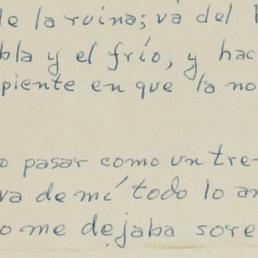 de la ruina; va del
bla y el frío, y hac
piente en que la no
o pasar como un tre-
va de mí todo lo an
o me dejaba sore